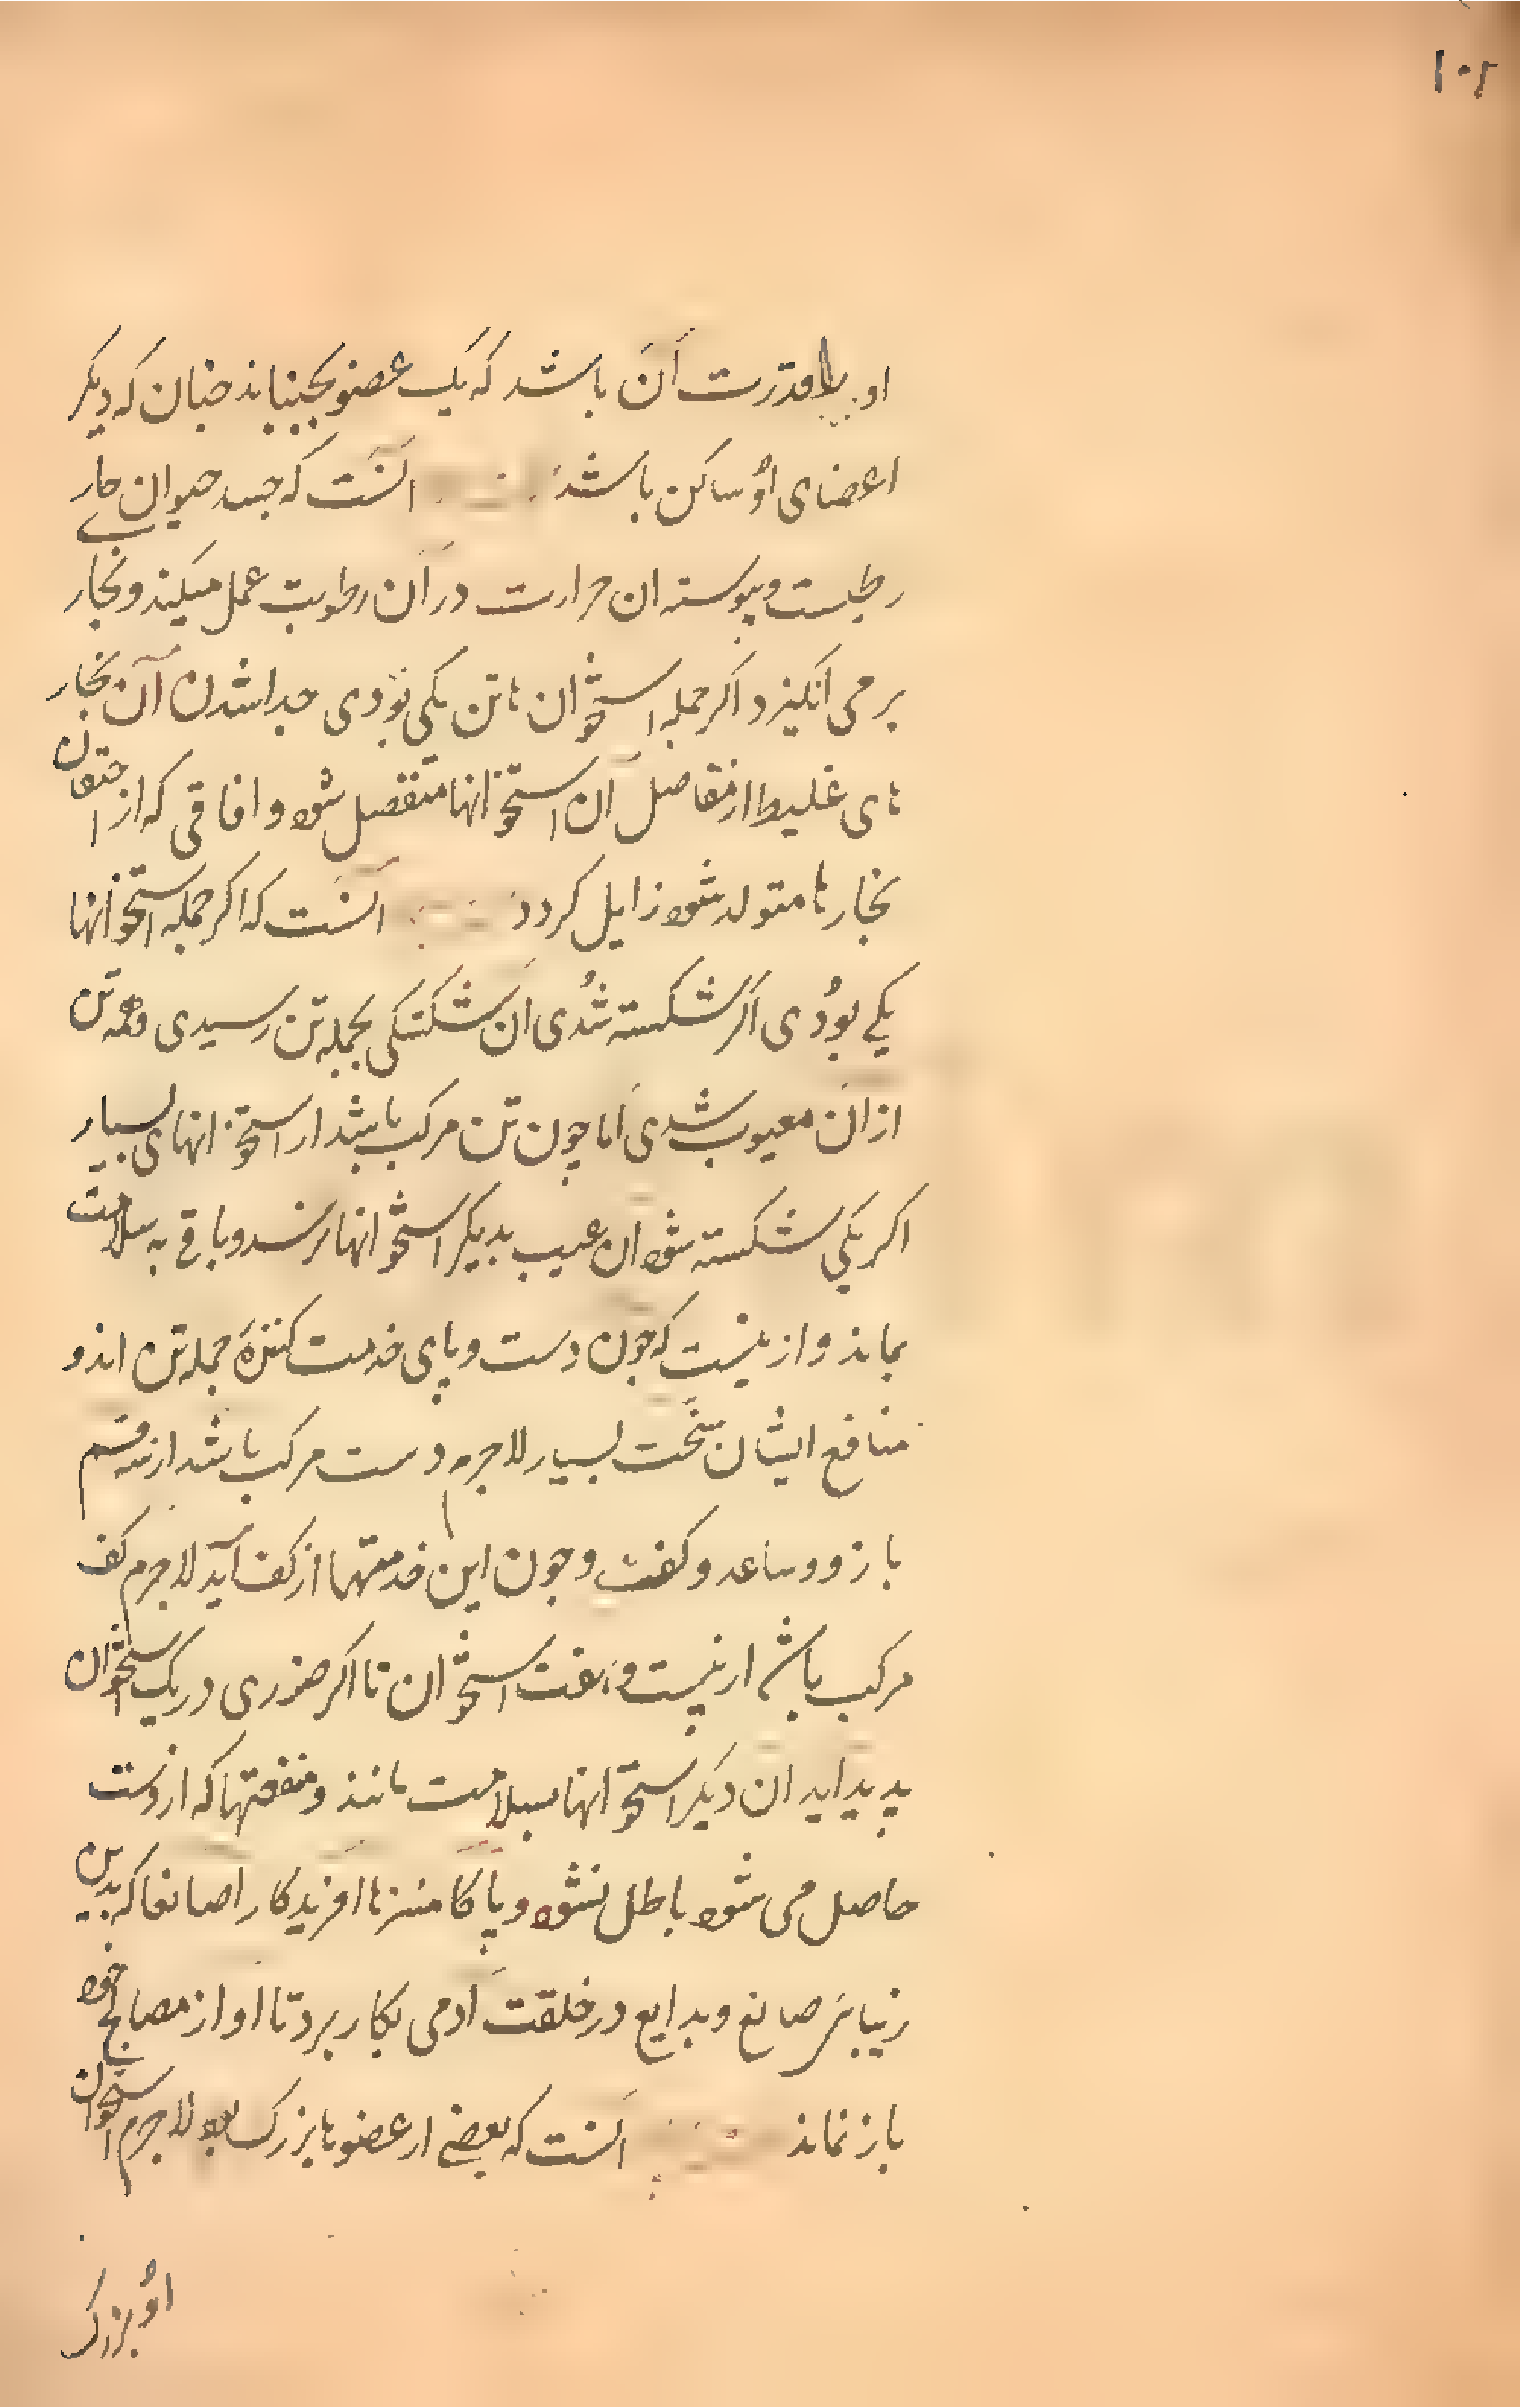 ۱۰۲
او را قدرت آن باشد که یک عضو بجنباند چنان که دیکر
اعضای او ساکن باشد آنست که جسد حیوان حار
رطبست و پیوسته ان حرارت در آن رطوبت عمل میکند و بخار
بر می انکیزد اکر جمله استخوان ها تن یکی بودی جدا شدن آن بخار
های غلیظ از مفاصل آن استخوانها منفصل شود و افاتی که از احتقان
بخارها متولد شود زایل کردد آنست که اکر جمله استخوانها
یکی بودی اکر شکسته شدی ان شکستکی بجمله تن رسیدی و همه تن
از ان معیوب شدی اما چون تن مرکب باشد از استخوانهای بسیار
اکر یکی شکسته شود ان عیب بدیکر استخوانها نرسد و باقی به سلامت
بماند و از ینست که چون دست و پای خدمت کننده جمله تن اند و
منافع ایشان سخت بسیار لاجرم دست مرکب باشد از سه قسم
بازو و ساعد و کف و چون این خدمتها از کف آید لاجرم کف
مرکب باشد از بیست و هفت استخوان تا اکر ضرری در یک استخوان
پدید اید ان دیکر استخوانها بسلامت مانند و منفعتها که از دست
حاصل می شود باطل نشود و پاکا منزها افریدکارا صانعا که بدین
زیبا بر صانع و بدایع در خلقت آدمی بکار برد تا او از مصالح خود
باز نماند آنست که بعضی از عضوها بزرک بود لاجرم استخوان
او بزرک